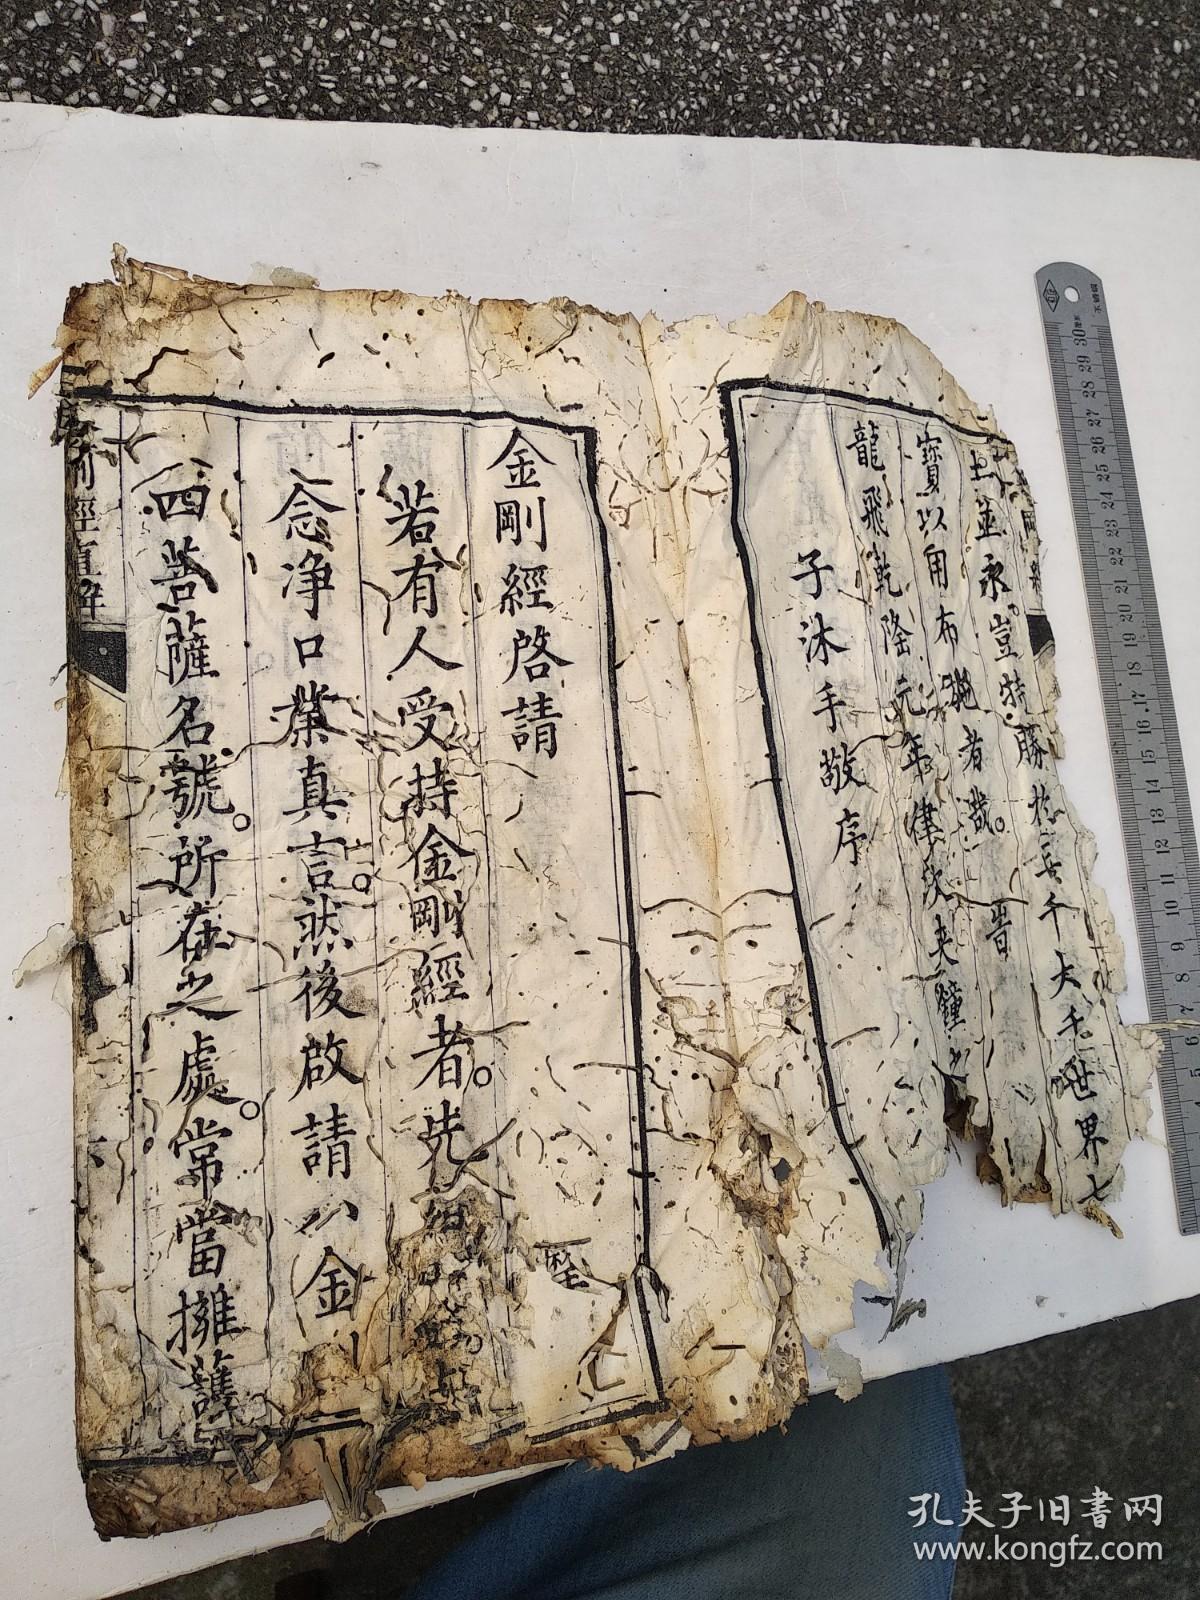 土並永。豈特勝於三千大千世界七
寶以用布施者哉。 旹
龍飛乾隆元年律次夾鐘之
子沐手敬序
金剛經啓請
若有人受持金剛經者。先
念淨口業真言。然後啟請八金
四菩薩名號。所在之處。常當擁護
剛經直解
孔夫子旧书网
www.kongfz.com